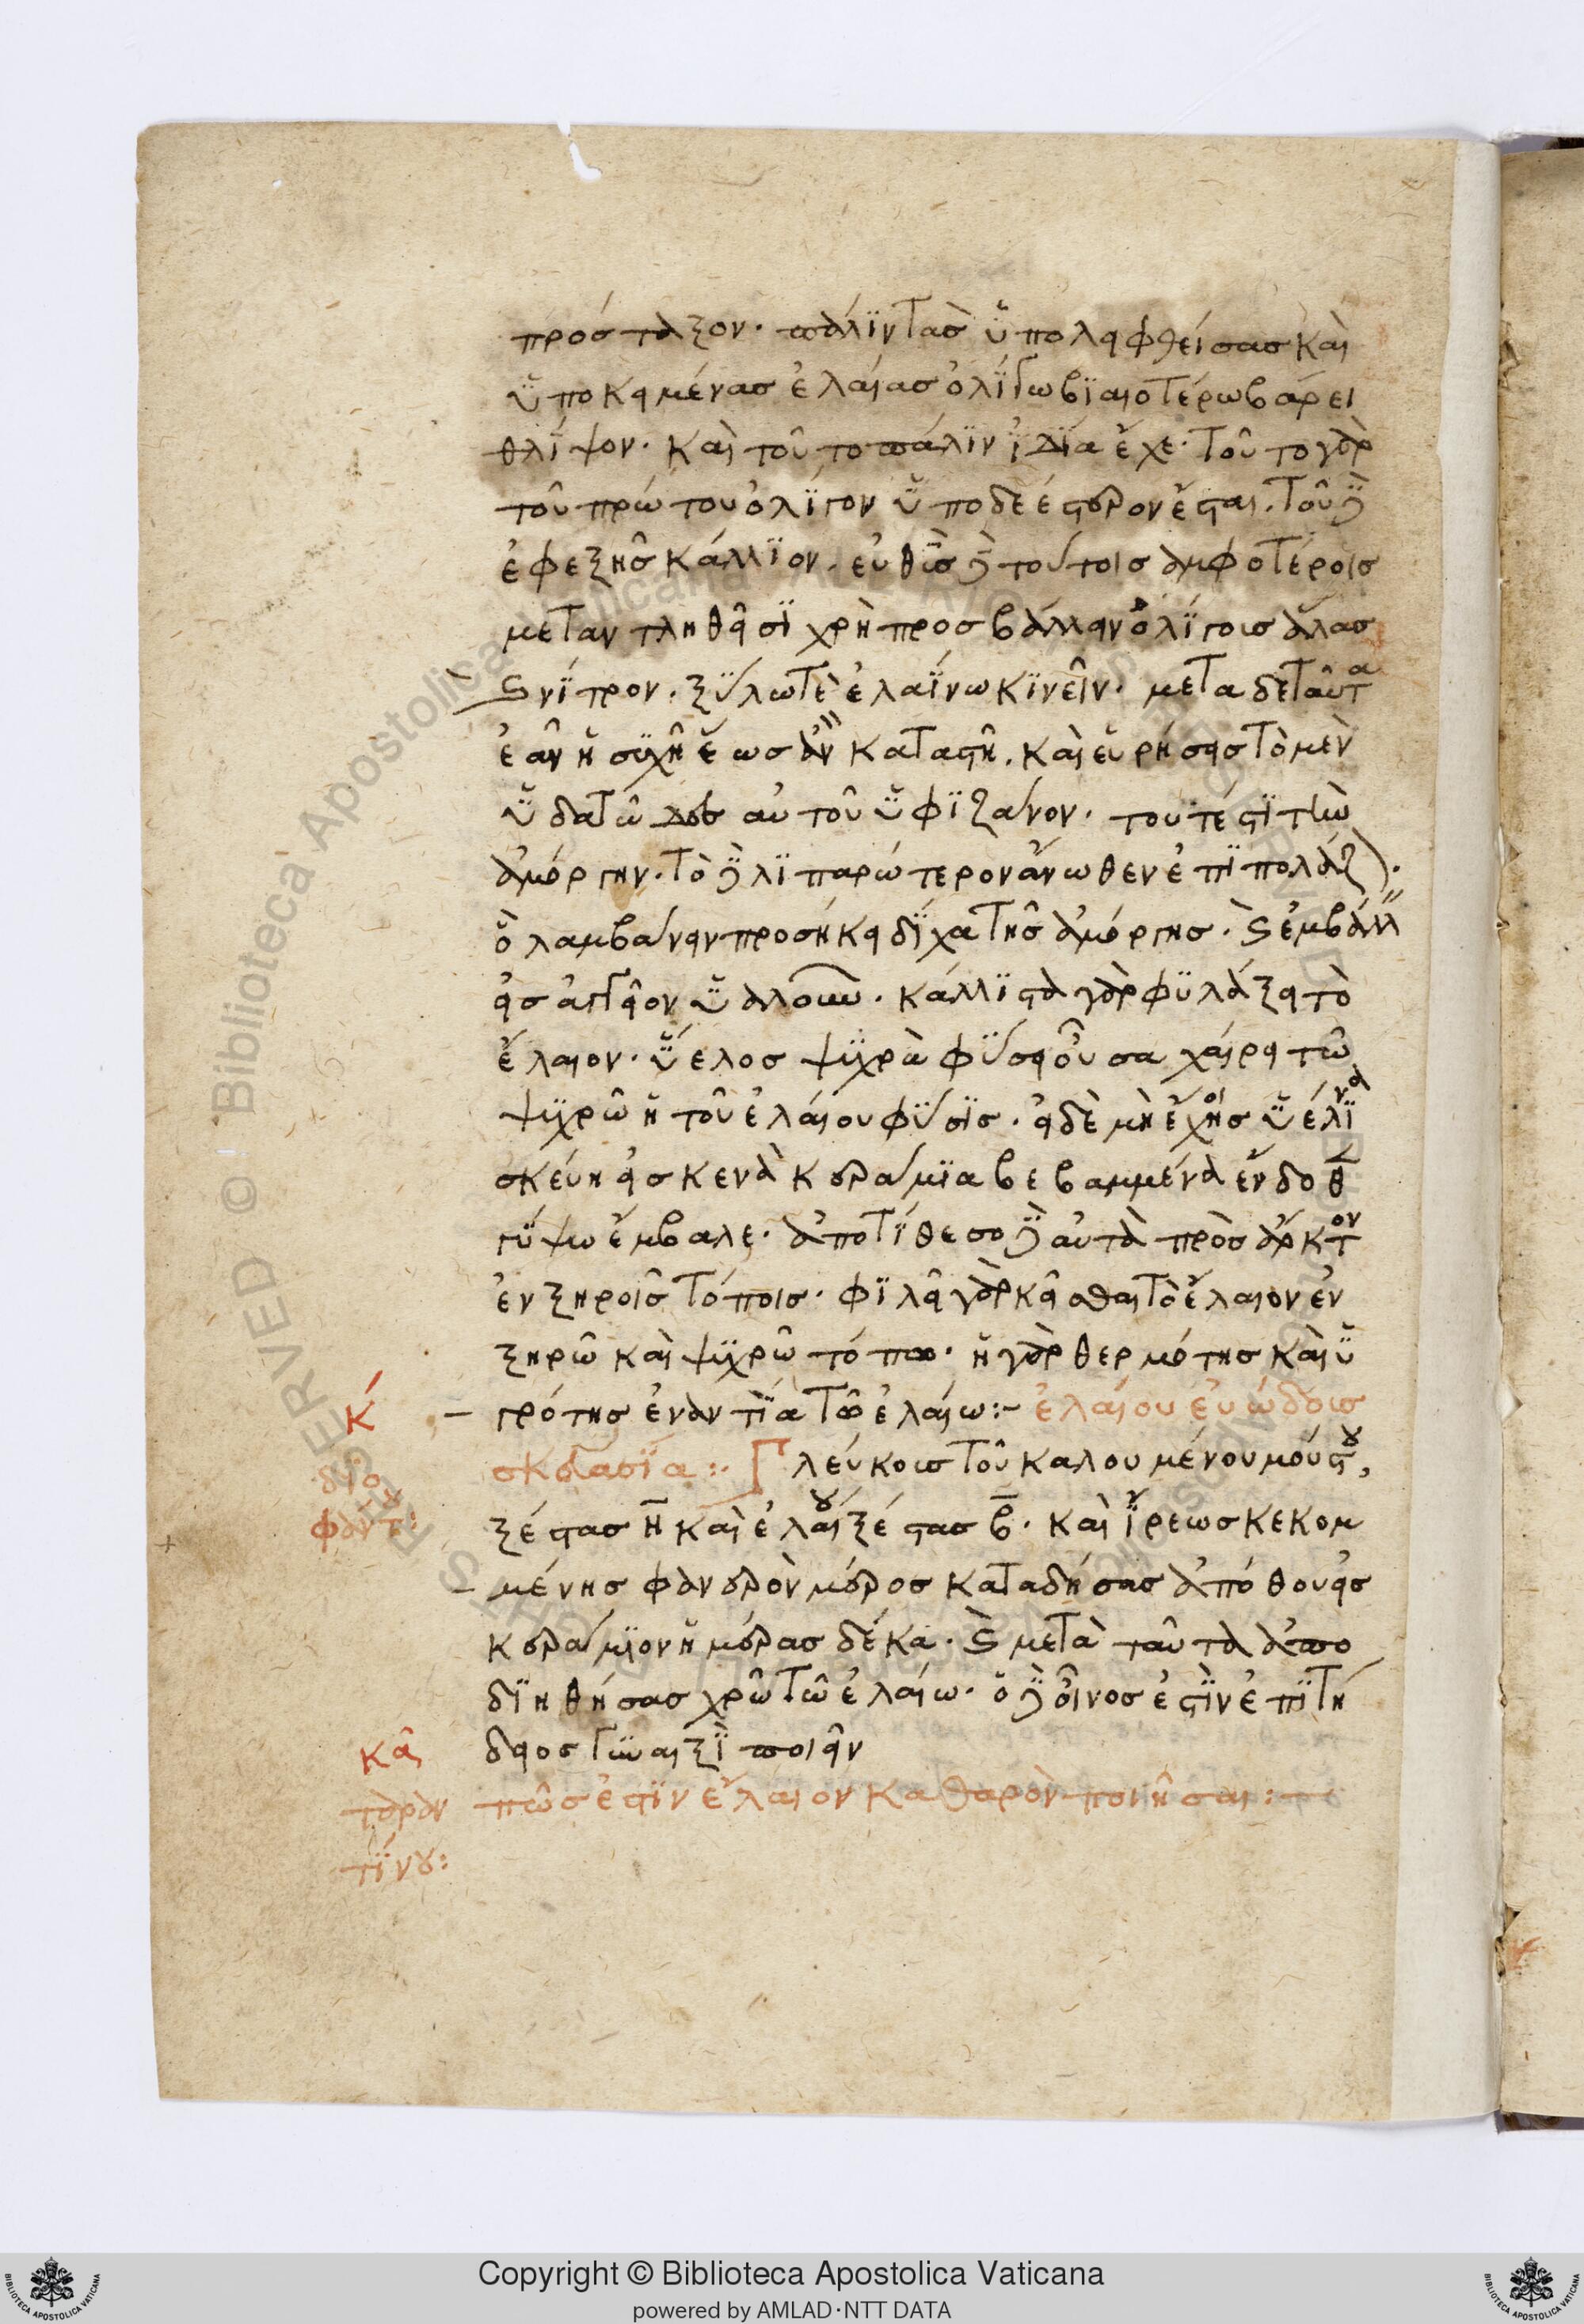 προσταξον. πάλιν τὰς ὑπολειφθείσας καὶ
ὑποκειμένας ἐλαίας ὀλίγω βιαιοτέρω βάρει
θλίψον. καὶ τοῦτο πάλιν ἰδία ἔχε. τοῦτο γὰρ
τοῦ πρώτου ὀλίγον ὑποδεέστερον ἔσται. τοῦ δὲ
ἐφεξῆς κάλλιον. εὐθὺς δὲ τούτοις ἀμφοτέροις
μεταντληθεῖσι χρὴ προσβάλλειν ὀλίγους ἅλας
καὶ νίτρον. ξύλω τὲ ἐλαΐνω κινεῖν. μετα δὲ ταῦτα
ἐᾶν ἡσυχῆ ἕως ἂν καταστῆ. καὶ εὑρήσεις τὸ μὲν
ὑδατῶδες αὐτοῦ ὑφιζάνον. τουτέστι τὴν
ἀμόργην. τὸ δὲ λιπαρώτερον ἄνωθεν ἐπιπολάζον.
ὃ λαμβάνειν προσήκει δίχα τῆς ἀμόργης. καὶ ἐμβάλλειν
εἰς ἀγγεῖον ὑαλοῦν. κάλλιστα γὰρ φυλάξει τὸ
ἔλαιον. ὕελος ψυχρὰ φύσει οὖσα χαίρει τῶ
ψυχρῶ ἡ τοῦ ἐλαίου φύσις. εἰ δὲ μὴ ἔχεις ὑέλινα
σκεύη εἰς κενὰ κεράμια βεβαμμένα ἔνδοθεν
γύψω ἔμβαλε. ἀποτίθεσο δὲ αὐτὰ πρὸς ἄρκτον
ἐν ξηροῖς τόποις. φιλεῖ γὰρ κεῖσθαι τὸ ἔλαιον ἐν
ξηρῶ καὶ ψυχρῶ τόπω. ἡ γὰρ θερμότης καὶ ὑ
γρότης ἐναντία τῶ ἐλαίω:– ἐλαίου εὐώδους
σκευασία:. Γλεύκους τοῦ καλουμένου μούστου,
ξέστας η̄ καὶ ἐλαίου ξέστας β̄. καὶ ἴρεως κεκομ
μένης φανερὸν μέρος καταδήσας ἀπόθου εἰς
κεράμιον ἡμέρας δέκα. καὶ μετὰ ταῦτα ἀπο
διηθήσας χρῶ τῶ ἐλαίω. ὁ δὲ οἶνος ἐστὶν ἐπιτή
δειος γυναιξὶ ποιεῖν
πῶς ἐστὶν ἔλαιον καθαρὸν ποιῆσαι:–
κ́
διο
φάντου:
κα
ταραν
τίνου: